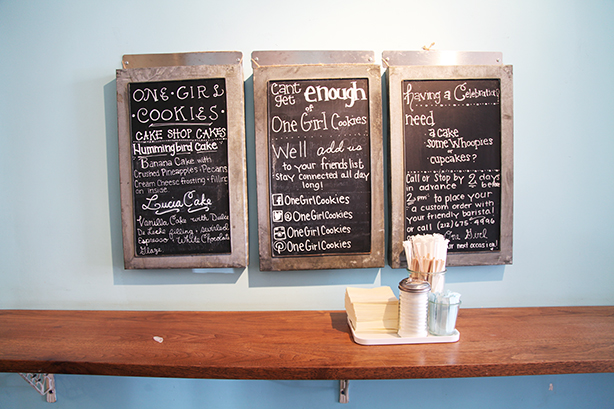 ONE · GIRL
COOKIES
CAKE SHOP CAKES
Hummingbird cake
Banana Cake with
Crushed Pineapples & Pecans
Cream Cheese frosting + filling
on inside.
Lucia Cake
Vanilla Cake with Dulce
De Leche filling, swirled
Espresso White Chocolate
Glaze
Cant
get enough
of
One Girl Cookies
We'll add us
to your friends list
stay connected all day
long!
OneGirlCookies
@OneGirlCookies
OneGirlCookies
OneGirlCookies
having a Celebration?
need
a cake
some Whoopies
or
cupcakes?
Call or Stop by 2 days
in advance before
2pm to place your
a custom order with
your friendly barista!
or call (212) 675-4996
One Girl
for your next occasion!